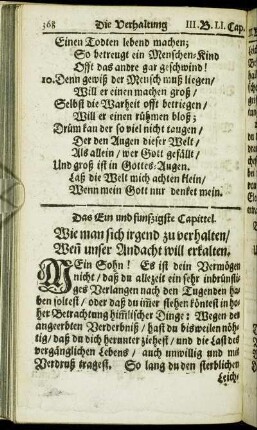 368 Die Verhaltung III. B. LI. Cap.
Einen Todten lebend machen;
So betreugt ein Menschen-Kind
Offt das andre gar geschwind!
10. Denn gewiß der Mensch muß liegen/
Will er einen machen groß/
Selbst die Warheit offt betriegen/
Will er einen rühmen bloß;
Drüm kan der so viel nicht taugen/
Der den Augen dieser Welt/
Als allein/ wer Gott gefällt/
Und groß ist in Gottes-Augen.
Laß die Welt mich achten klein/
Wenn mein Gott nur dencket mein.
Das Ein und funfzigste Capittel.
Wie man sich irgend zu verhalten/
Weñ unser Andacht will erkalten.
MEin Sohn! Es ist dein Vermögen
nicht/ daß du allezeit ein sehr inbrünsti-
ges Verlangen nach den Tugenden ha-
ben soltest/ oder daß du im̃er stehen köntest in ho-
her Betrachtung him̃lischer Dinge: Wegen des
angeerbten Verderbniß/ hast du bisweilen nöh-
tig/ daß du dich herunter ziehest/ und die Last des
vergänglichen Lebens/ auch unwillig und mit
Verdruß tragest. So lang du den sterblichen
Leich-